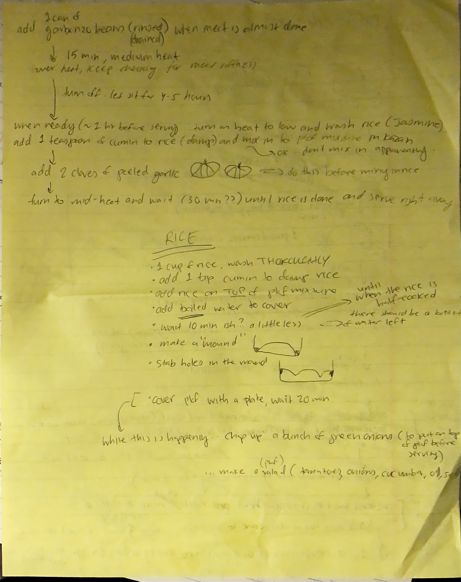 1 can of
add garbanzo beans (rinsed, drained) when meat is almost done
15 min, medium heat
over heat, keep checking for meat softness
turn off let sit for 4-5 hours
when ready (~1 hr before serving turn on heat to low and wash rice (Jasmine)
add 1 teaspoon of cumin to rice (damp) and mix in to plof mixture
or dont mix in
add 2 cloves of peeled garlic do this before mixing in rice
turn to mid-heat and wait (30 min??) until rice is done and serve right away
RICE
· 1 cup of rice, wash THOROUGHLY
· add 1 tsp cumin to damp rice
· add rice on TOP of plof mixture
· add boiled water to cover
until
when the rice is
half-cooked
· wait 10 min ish? a little less
there should be a
of water left
· make a "mound"
· stab holes in the mound
· cover plof with a plate, wait 20 min
while this is happening chop up a bunch of green onions (to put on top
of plof before
serving)
... make a salad (tomatoes, onions, cucumbers, oil,